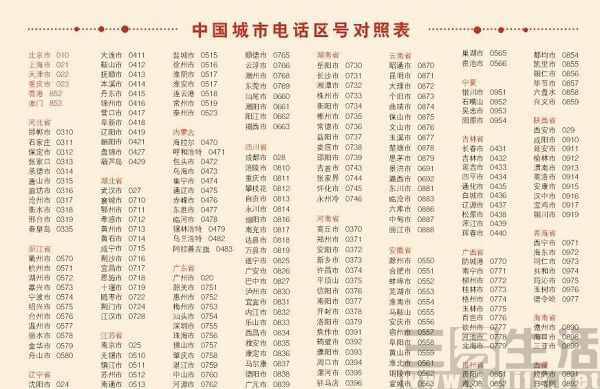 中国城市电话区号对照表
北京市 010
上海市 021
天津市 022
重庆市 023
香港 852
澳门 853
河北省
邯郸市 0310
石家庄 0311
保定市 0312
张家口 0313
承德市 0314
唐山市 0315
廊坊市 0316
沧州市 0317
衡水市 0318
邢台市 0319
秦皇岛 0335
浙江省
衢州市 0570
杭州市 0571
湖州市 0572
嘉兴市 0573
宁波市 0574
绍兴市 0575
台州市 0576
温州市 0577
丽水市 0578
金华市 0579
舟山市 0580
辽宁省
沈阳市 024
大连市 0411
鞍山市 0412
抚顺市 0413
本溪市 0414
丹东市 0415
锦州市 0416
营口市 0417
阜新市 0418
辽阳市 0419
朝阳市 0421
盘锦市 0427
葫芦岛 0429
湖北省
武汉市 027
襄城市 0710
鄂州市 0711
孝感市 0712
黄州市 0713
黄石市 0714
咸宁市 0715
荆沙市 0716
宜昌市 0717
恩施市 0718
十堰市 0719
随枣市 0722
荆门市 0724
江汉市 0728
江苏省
南京市 025
无锡市 0510
镇江市 0511
苏州市 0512
南通市 0513
盐城市 0515
徐州市 0516
淮阴市 0517
淮安市 0517
连云港 0518
常州市 0519
泰州市 0523
内蒙古
海拉尔 0470
呼和浩特 0471
包头市 0472
乌海市 0473
集宁市 0474
通辽市 0475
赤峰市 0476
东胜市 0477
临河市 0478
锡林浩特 0479
乌兰浩特 0482
阿拉善左旗 0483
广东省
广州市 020
韶关市 0751
惠州市 0752
梅州市 0753
汕头市 0754
深圳市 0755
珠海市 0756
佛山市 0757
肇庆市 0758
湛江市 0759
中山市 0760
河源市 0762
顺德市 0765
云浮市 0766
潮州市 0768
东莞市 0769
汕尾市 0660
潮阳市 0661
阳江市 0662
揭西市 0663
四川省
成都市 028
涪陵市 0810
重庆市 0811
攀枝花 0812
自贡市 0813
永川市 0814
绵阳市 0816
南充市 0817
达县市 0818
万县市 0819
遂宁市 0825
广安市 0826
巴中市 0827
泸州市 0830
宜宾市 0831
内江市 0832
乐山市 0833
西昌市 0834
雅安市 0835
康定市 0836
马尔康 0837
德阳市 0838
广元市 0839
湖南省
岳阳市 0730
长沙市 0731
湘潭市 0732
株州市 0733
衡阳市 0734
郴州市 0735
常德市 0736
益阳市 0737
娄底市 0738
邵阳市 0739
吉首市 0743
张家界 0744
怀化市 0745
永州冷 0746
河南省
商丘市 0370
郑州市 0371
安阳市 0372
新乡市 0373
许昌市 0374
平顶山 0375
信阳市 0376
南阳市 0377
开封市 0378
洛阳市 0379
焦作市 0391
鹤壁市 0392
濮阳市 0393
周口市 0394
漯河市 0395
驻马店 0396
云南省
昭通市 0870
昆明市 0871
大理市 0872
个旧市 0873
曲靖市 0874
保山市 0875
文山市 0876
玉溪市 0877
楚雄市 0878
思茅市 0879
景洪市 0691
潞西市 0692
东川市 0881
临沧市 0883
六库市 0886
中甸市 0887
丽江市 0888
安徽省
滁州市 0550
合肥市 0551
蚌埠市 0552
芜湖市 0553
淮南市 0554
马鞍山 0555
安庆市 0556
宿州市 0557
阜阳市 0558
黄山市 0559
淮北市 0561
铜陵市 0562
宣城市 0563
六安市 0564
巢湖市 0565
贵池市 0566
宁夏
银川市 0951
石嘴山 0952
吴忠市 0953
固原市 0954
吉林省
长春市 0431
吉林市 0432
延吉市 0433
四平市 0434
通化市 0435
白城市 0436
辽源市 0437
松原市 0438
浑江市 0439
珲春市 0440
广西省
防城港 0770
南宁市 0771
柳州市 0772
桂林市 0773
梧州市 0774
玉林市 0775
百色市 0776
钦州市 0777
河池市 0778
北海市 0779
都均市 0854
凯里市 0855
铜仁市 0856
毕节市 0857
六盘水 0858
兴义市 0859
陕西省
西安市 029
咸阳市 0910
延安市 0911
榆林市 0912
渭南市 0913
商洛市 0914
安康市 0915
汉中市 0916
宝鸡市 0917
铜川市 0919
青海省
西宁市 0971
海东市 0972
同仁市 0973
共和市 0974
玛沁市 0975
玉树市 0976
德令哈 0977
海南省
儋州市 0890
海口市 0898
三亚市 0899
西藏
三晋生活